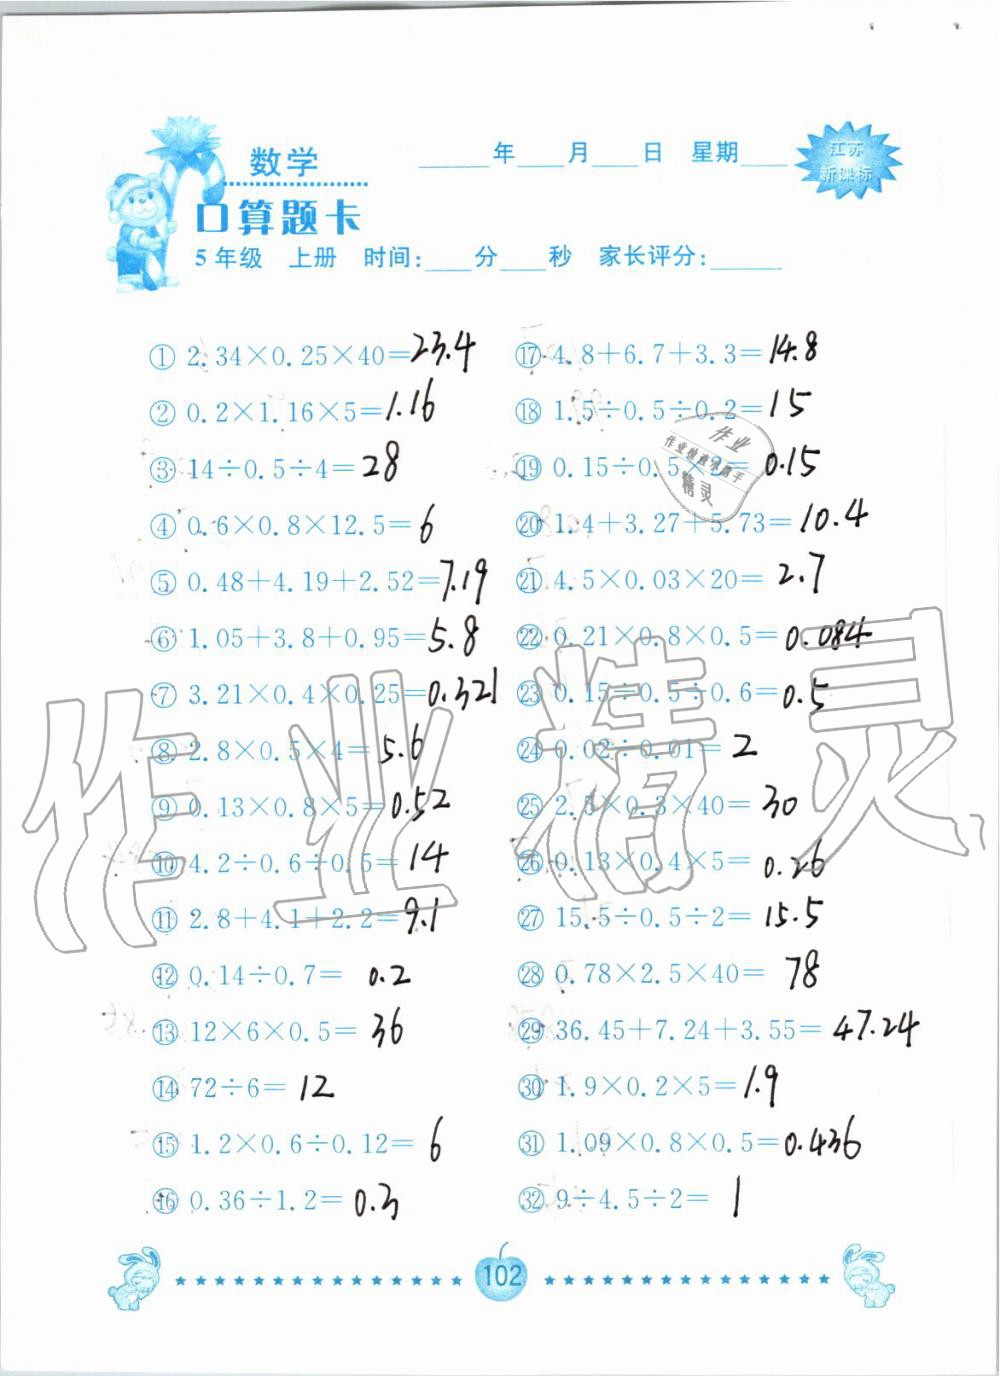 数学
____年____月____日 星期____
江苏
新课标
口算题卡
5年级 上册 时间:____分____秒 家长评分:____
① 2.34×0.25×40=23.4
② 0.2×1.16×5=1.16
③ 14÷0.5÷4=28
④ 0.6×0.8×12.5=6
⑤ 0.48+4.19+2.52=7.19
⑥ 1.05+3.8+0.95=5.8
⑦ 3.21×0.4×0.25=0.321
⑧ 2.8×0.5×4=5.6
⑨ 0.13×0.8×5=0.52
⑩ 4.2÷0.6÷0.5=14
⑪ 2.8+4.1+2.2=9.1
⑫ 0.14÷0.7=0.2
⑬ 12×6×0.5=36
⑭ 72÷6=12
⑮ 1.2×0.6÷0.12=6
⑯ 0.36÷1.2=0.3
⑰ 4.8+6.7+3.3=14.8
⑱ 1.5÷0.5÷0.2=15
⑲ 0.15÷0.5×=0.15
⑳ 1.4+3.27+5.73=10.4
㉑ 4.5×0.03×20=2.7
㉒ 0.21×0.8×0.5=0.084
㉓ 0.15÷0.5÷0.6=0.5
㉔ 0.02÷0.01=2
㉕ 2.5×0.3×40=30
㉖ 0.13×0.4×5=0.26
㉗ 15.5÷0.5÷2=15.5
㉘ 0.78×2.5×40=78
㉙ 36.45+7.24+3.55=47.24
㉚ 1.9×0.2×5=1.9
㉛ 1.09×0.8×0.5=0.436
㉜ 9÷4.5÷2=1
作业
精灵
作业精灵
102